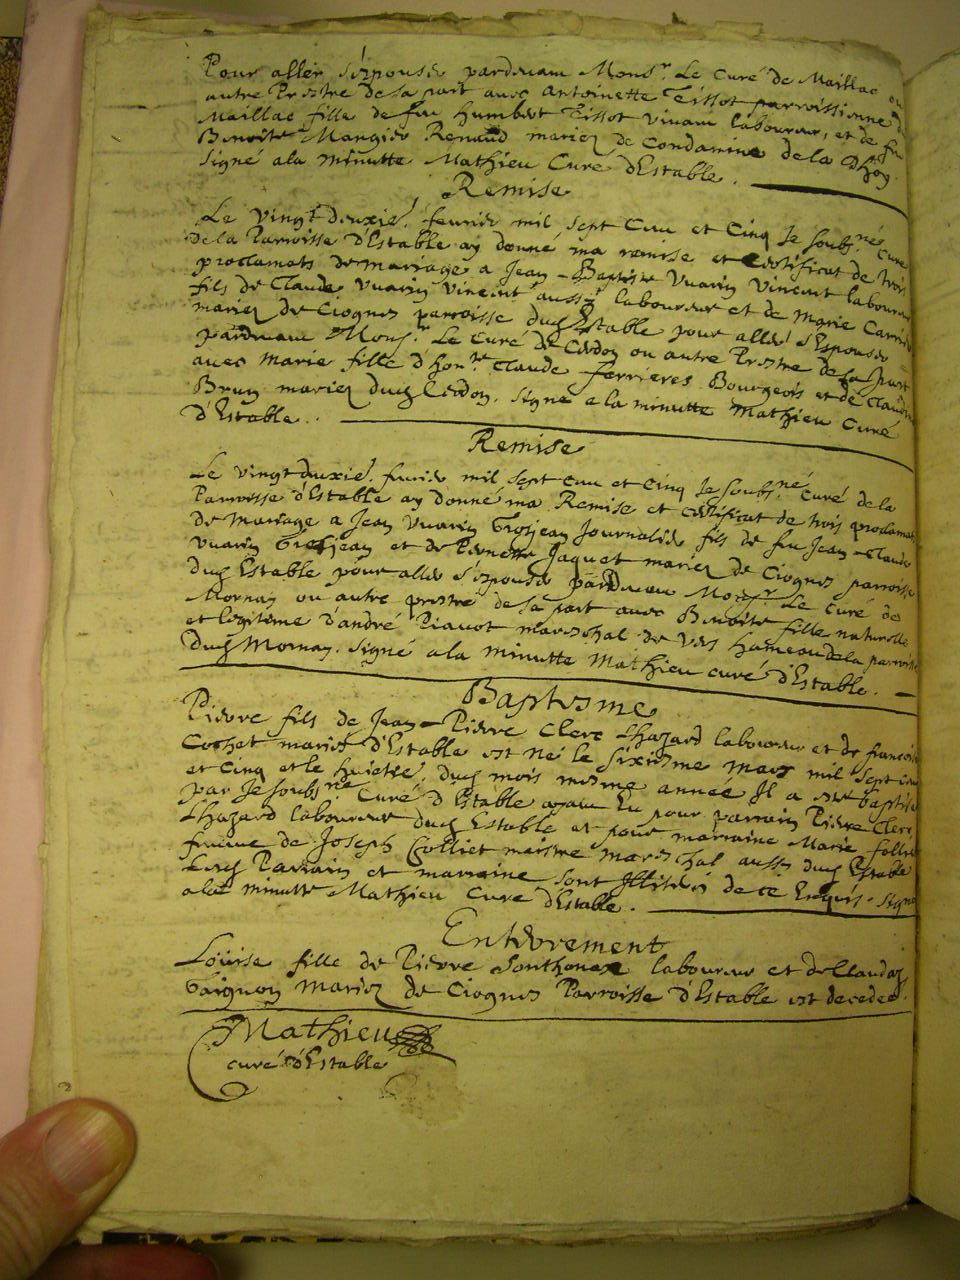 Pour aller s'épouser pardevam Monsr. Le Curé de Maillac ou
autre Prestre de sa part avec Antoinette Tissot parroissienne de
Maillac fille de feu Humbert Tissot vivam laboureur, et de feu
Benoite Mangier Renaud mariez de Condamine de la Dhoy
Signé ala minutte Mathieu Curé d'Estable.
Remise
Le vingt deuxié. fevrier mil sept Cen et Cinq Je soubs.né Curé
de la Parroisse d'Estable ay donné ma remise et certificat de trois
proclamats de mariage a Jean-Baptiste Vuarin Vincent laboureur
fils de Claude Vuarin Vincent aussy laboureur et de Marie Carrier
mariez de Ciognes parroisse dud Estable pour aller s'Espouser
pardevam Monsr. Le Curé de Cerdon ou autre Prestre de sa part
avec Marie fille d'honte. Claude ferrieres Bourgeois et de Claudine
Brun mariez dud Cerdon. Signé a la minutte Mathieu Curé
d'Estable.
Remise
Le vingt deuxié. fevrier mil sept Cen et Cinq Je soubs.né Curé de la
Parroisse d'Estable ay donné ma Remise et certificat de trois proclamats
de Mariage a Jean Vuarin Grosjean Journalier fils de feu Jean-Claude
Vuarin Grosjean et de Pernette Jaquet mariez de Ciognes parroisse
dud Estable pour aller s'épouser pardevam Monsr. Le Curé de
Mornay ou autre prestre de sa part avec Benoite fille naturelle
et legiteme d'andré Piavot mareschal de Vers hameau de la parroisse
dud Mornay. Signé a la minutte Mathieu curé d'Estable.
Baptesme
Pierre fils de Jean-Pierre Clerc Lhazard laboureur et de françoise
Cochet mariez d'Estable est né le sixiesme mars mil sept cen
et Cinq et le huictié. dud mois mesme année Il a esté baptisé
par Je soubs.né Curé d'Estable ayam Eu pour parrain Pierre Clerc
Lhazard laboureur dud Estable et pour marraine Marie follie
femme de Joseph Colliet maistre mareschal aussy dud Estable
Lesd Parrain et marraine sont Illiterés de ce Enquis. Signé
ala minutte Mathieu Curé d'Estable.
Enterrement
Louise fille de Pierre Sonthonax laboureur et de Claudaz
Gaignon Mariez de Ciognes Parroisse d'Estable est decedée.
Mathieu
curé d'Estable